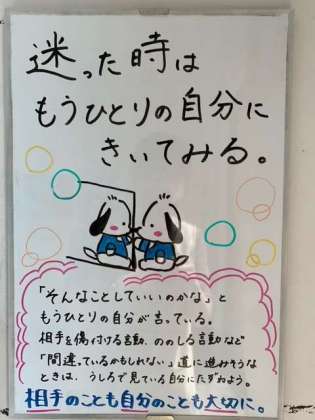 迷った時は
もうひとりの自分に
きいてみる。
「そんなことしていいのかな」と
もうひとりの自分が言っている。
相手を傷付ける言動、ののしる言動など
「間違っているかもしれない」道に進みそうな
ときは、うしろで見ている自分にたずねよう。
相手のことも自分のことも大切に。